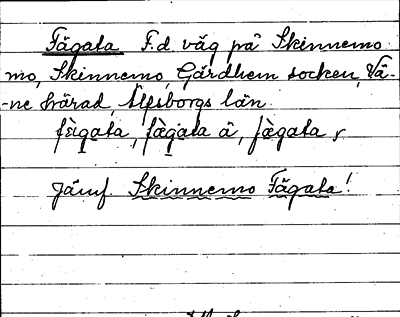 Fägata F.d. väg på Skinnemo
mo, Skinnemo, Gärdhem socken, Vä-
-ne härad, Älfsborgs län.
fägata, fägata å, fägata,
Jämf. Skinnemo Fägata!